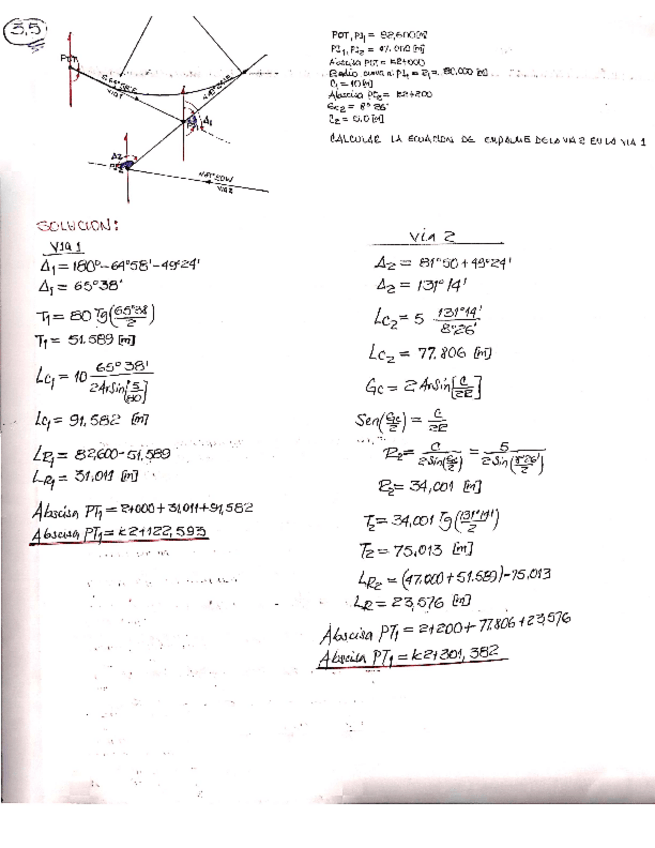 3,5
POT, PI₁ = 82,600 [m]
PI₁, PI₂ = 47.000 [m]
Abscisa POT = K2+000
Radio curva en PI₁ = R₁ = 80,000 [m]
C₁ = 10 [m]
Abscisa PC₂ = K2+200
Gc₂ = 8°26'
C₂ = 5.0 [m]
CALCULAR LA ECUACION DE EMPALME DE LA VIA 2 EN LA VIA 1
POT
VIA 1
Δ₁
Δ₂
VIA 2
SOLUCION:
VIA 1
Δ₁ = 180° - 64°58' - 49°24'
Δ₁ = 65°38'
T₁ = 80 Tg(65°38'/2)
T₁ = 51.589 [m]
Lc₁ = 10 65°38' / 2ArSin[5/80]
Lc₁ = 91,582 [m]
LR₁ = 82,600 - 51,589
LR₁ = 31,011 [m]
Abscisa PT₁ = 2+000 + 31,011 + 91,582
Abscisa PT₁ = K2+122,593
VIA 2
Δ₂ = 81°50 + 49°24'
Δ₂ = 131°14'
Lc₂ = 5 131°14' / 8°26'
Lc₂ = 77.806 [m]
Gc = 2 ArSin[C/2R]
Sen(Gc/2) = C/2R
R₂ = C / 2Sin(Gc/2) = 5 / 2Sin(8°26'/2)
R₂ = 34,001 [m]
T₂ = 34,001 Tg(131°14'/2)
T₂ = 75,013 [m]
LR₂ = (47.000 + 51.589) - 75,013
LR = 23,576 [m]
Abscisa PT₁ = 2+200 + 77.806 + 23,576
Abscisa PT₁ = K2+301,382